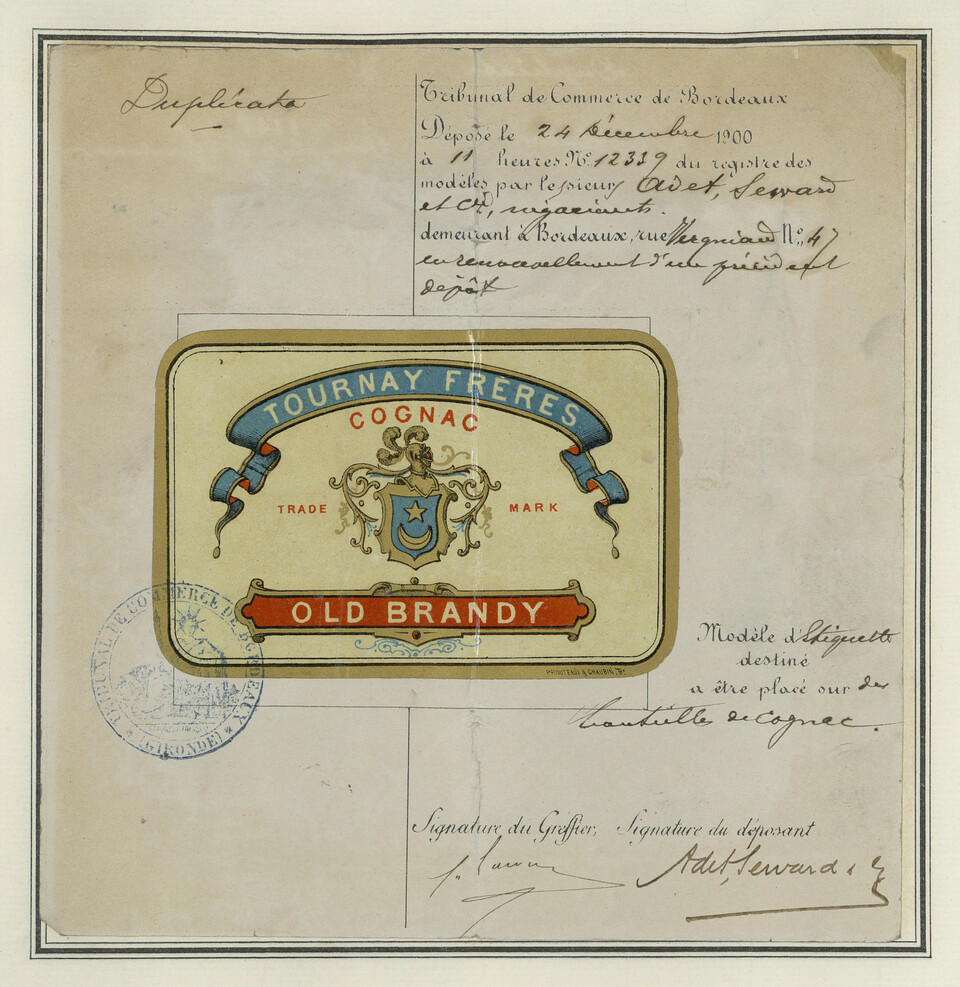 Duplicata
Tribunal de Commerce de Bordeaux
Déposé le 24 Décembre 1900
à 11 heures No. 12339 du registre des
modèles par le sieurs Adet, Seward
et Cie, négociants.
demeurant à Bordeaux, rue Vergniaud No. 47
en renouvellement d'un précédent
dépôt
TOURNAY FRÈRES
COGNAC
TRADE MARK
OLD BRANDY
TRIBUNAL DE COMMERCE DE BORDEAUX
(GIRONDE)
Modèle d'Etiquette
destiné
a être placé sur des
bouteilles de Cognac.
Signature du Greffier, Signature du déposant
Adet, Seward &